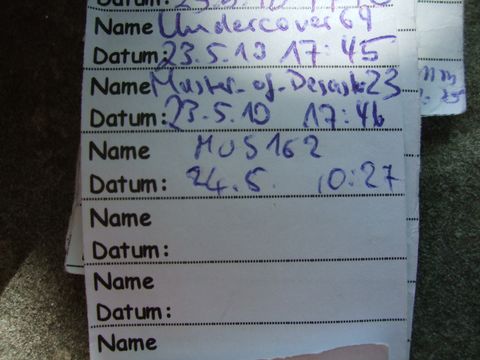 Datum:
Name Undercover69
Datum: 23.5.10 17:45
Name Master_of_Desaster23
Datum: 23.5.10 17:46
Name MUS162
Datum: 24.5. 10:27
Name
Datum:
Name
Datum:
Name